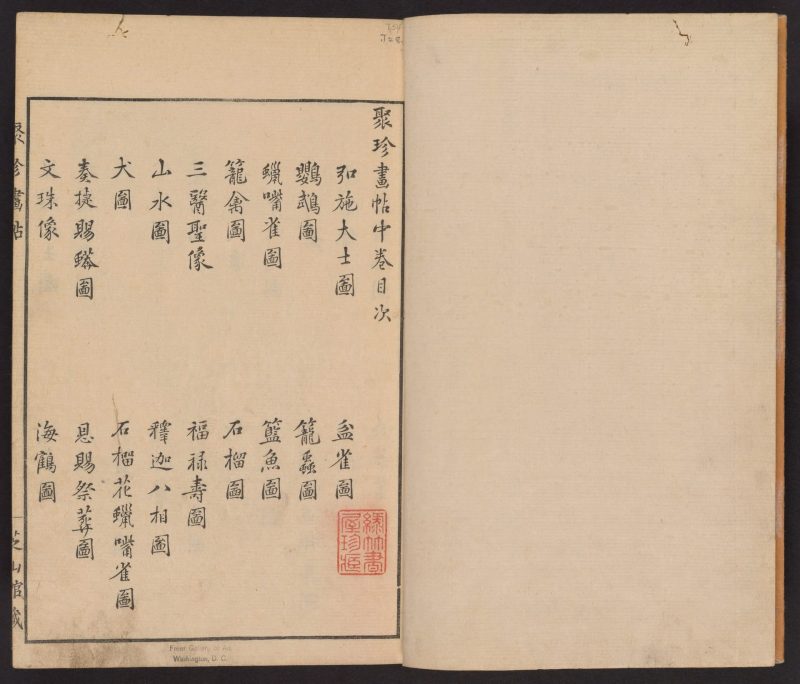 聚珍畫帖中巻目次
弘施大士圖 盆雀圖
鸚鵡圖 籠蟲圖
蠟嘴雀圖 籃魚圖
籠禽圖 石榴圖
三醫聖像 福禄壽圖
山水圖 釋迦八相圖
犬圖 石榴花蠟嘴雀圖
奏捷賜蟒圖 恩賜祭葬圖
文珠像 海鶴圖
聚珍畫帖 芝山館藏
竹書屋珍
Freer Gallery of Art
Washington, D. C.